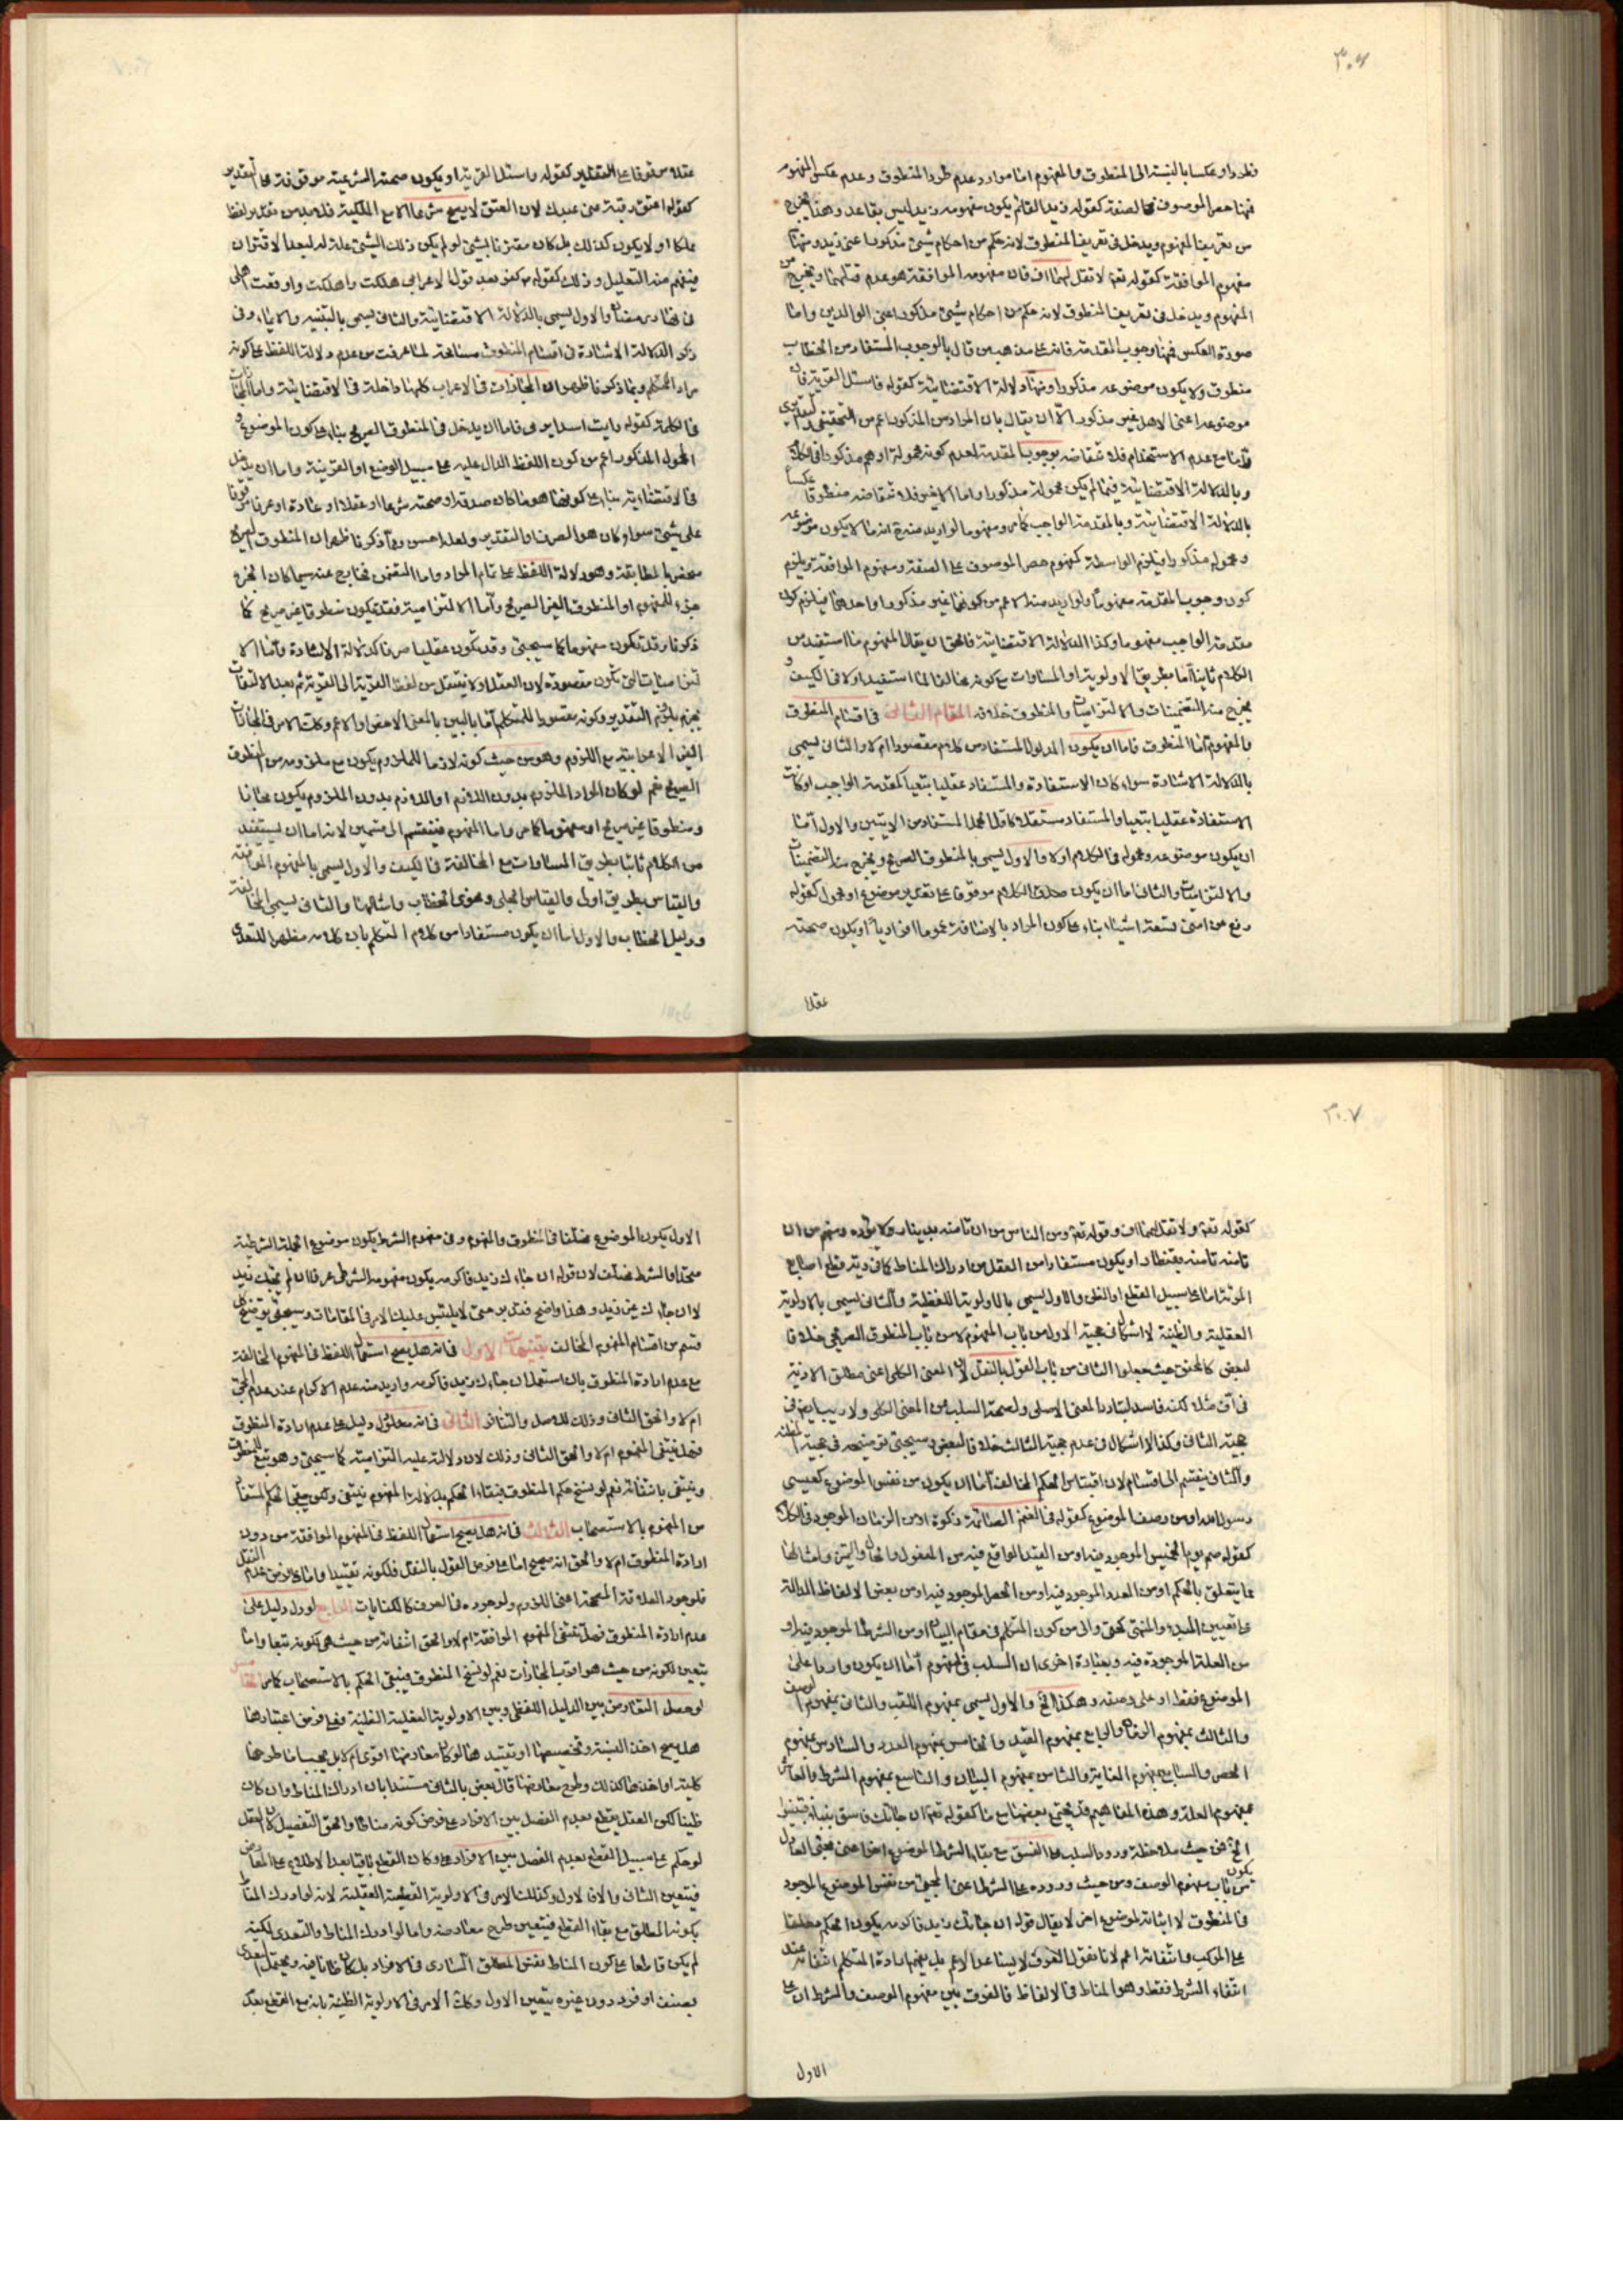 ٣٠٦
طردا وعكسا بالنسبة الى المنطوق والمفهوم اما موارد عدم طرد المنطوق وعدم عكس المفهوم
فمنها حصر الموصوف في الصفة كقوله زيد القائم يكون مفهومه زيد ليس بقاعد وهذا يخرج
من تعريف المفهوم ويدخل في تعريف المنطوق لانه حكم من احكام شيء مذكور اعني زيد ومنها
مفهوم الموافقة كقوله تعم لا تقل لهما اف فان مفهومه الموافقة هو عدم قتلهما ويخرج من
المفهوم ويدخل في تعريف المنطوق لانه حكم من احكام شيء مذكور اعني الوالدين واما
صورة العكس فمنها وجوب المقدمة فانه على مذهب من قال بالوجوب المستفاد من الخطاب
منطوق ولا يكون موضوعه مذكورا ومنها دلالة الاقتضائية كقوله فاسئل القرية فان
موضوعه اعني الاهل غير مذكور الا ان يقال بان المراد من المذكور اعم من التحقيقي والتقديري
واما مع عدم الاستخدام فلا نقاضه بوجوب المقدمة لعدم كونه محمولة او هم مذكور في الكلام
وبالدلالة الاقتضائية فيما لم يكن محموله مذكورا واما الاخير فلا نقاضه منطوقا عكسا
بالدلالة الاقتضائية وبالمقدمة الواجب كما مر ومفهوما لو اريد منه انه ما لا يكون موضوعه
ومحموله مذكورا فيلزم الواسطة كمفهوم حصر الموصوف على الصفة ومفهوم الموافقة ويلزم
كون وجوب المقدمة مفهوما ولو اريد منه الاعم من كونهما غير مذكور او احدهما فيلزم كون
مقدمة الواجب مفهوما وكذا الدلالة الاقتضائية فالحق ان يقال المفهوم ما استفيد من
الكلام ثانيا اما بطريق الاولوية او المساوات مع كونه مخالفا لما استفيد اولا في الكيف و
يخرج منه التضمنيات والالتزاميات والمنطوق خلافه المقام الثاني في اقسام المنطوق
والمفهوم اما المنطوق فاما ان يكون المدلول المستفاد من كلام مقصودا ام لا والثاني يسمى
بالدلالة الاشارة سواء كان الاستفادة والمستفاد عقليا تبعيا كمقدمة الواجب او كانت
الاستفادة عقليا تبعيا والمستفاد مستقلا كاقل الحمل المستفاد من الايتين والاول اما
ان يكون موضوعه ومحموله في الكلام اولا والاول يسمى بالمنطوق الصريح ويخرج منه التضمنيات
والالتزاميات والثاني اما ان يكون صدق الكلام موقوفا على تقدير موضوع او محمول كقوله
رفع من امتي تسعة اشياء بناء على كون المراد بالاضافة عموما افراديا او يكون صحته
عقلا
عقلا موقوفا على التقدير كقوله واسئل القرية او يكون صحته الشرعية موقوفة على التقدير
كقوله اعتق رقبة عني عبدك لان العتق لا يصح شرعا الا مع الملكية فلا بد من تقدير لفظ
مملكا او لا يكون كذلك بل كان مقترنا بشيء لو لم يكن ذلك الشيء علة له لبعد الاقتران
فيفهم منه التعليل وذلك كقوله كفر بعد قول الاعرابي هلكت واهلكت واوقعت اهلي
في نهار رمضان والاول يسمى بالدلالة الاقتضائية والثاني يسمى بالتنبيه والايماء وفي
ذكر الدلالة الاشارة في اقسام المنطوق مسامحة لما عرفت من عدم دلالة اللفظ على كونه
مراد المتكلم وبما ذكرنا ظهر ان المجازات في الاعراب كلها داخلة في الاقتضائية واما المجازات
في الكلمة كقوله رايت اسدا يرمي فاما ان يدخل في المنطوق الصريح بناء على كون الموضوع و
المحمول المذكور اعم من كون اللفظ الدال عليه على سبيل الوضع او القرينة واما ان يدخل
في الاقتضائية بناء على كونها هو ما كان صدقه او صحته شرعا او عقلا او عادة او عرفا موقوفا
على شيء سواء كان هو الصرف او التقدير ولعله احسن ومما ذكرنا ظهر ان المنطوق الصريح
منحصر بالمطابقة وهو دلالة اللفظ على تمام المراد واما التضمن فخارج عنه سيما كان الخرج
جزء للمفهوم او المنطوق الغير الصريح واما الالتزامية فقد يكون منطوقا غير صريح كما
ذكرنا وقد يكون مفهوما كما سيجيء وقد يكون عقليا صرفا كدلالة الاشارة واما الا
لتزاميات التي تكون مقصودة لان العقل اولا ينتقل من لفظ القرية الى القرية ثم بعد الالتفات
يجزم بلزوم التقدير وكونه مقصودا للمتكلم اما بالبين بالمعنى الاخص او الاعم وكذا الامر في المجازات
الغير الاعرابية مع اللزوم وهو من حيث كونه لازما للملزوم يكون مع ملزومه من المنطوق
الصريح نعم لو كان المراد الملزوم بدون اللازم او اللازم بدون الملزوم يكون مجازا
ومنطوقا غير صريح او مفهوما كما مر واما المفهوم فينقسم الى قسمين لانه اما ان يستفيد
من الكلام ثانيا بطريق المساوات مع المخالفة في الكيف والاول يسمى بالمفهوم الموافقة
والقياس بطريق اولى والقياس الجلي وفحوى الخطاب وامثالهما والثاني يسمى المخالفة
ودليل الخطاب والاول اما ان يكون مستفادا من كلام المتكلم بان كلامه مظهرا للتعدي
٣٠٧
كقوله تعم ولا تقل لهما اف وقوله تعم ومن الناس من ان تامنه بدينار ولا يؤده ومنهم من ان
تامنه تامنه بقنطار او يكون مستفادا من العقل من ادراك المناط كما في دية قطع اصابع
المرئة اما على سبيل القطع او الظن والاول يسمى بالاولوية اللفظية والثاني يسمى بالاولوية
العقلية والظنية لا اشكال في حجية الاول من باب المفهوم لا من باب المنطوق الصريحي خلافا
لبعض كالمحقق حيث جعلوا الثاني من باب القول بالنقل لان المعنى الكلي اعني مطلق الاذية
في اف مثلا لكنه فاسد لتبادر المعنى الاصلي ولصحة السلب من المعنى الكلي ولا ريب ايضا في
حجية الثاني وكذا لا اشكال في عدم حجية الثالث خلافا لبعض وسيجيء توضيحه في حجية المظنة
والثاني ينقسم الى اقسام لان اقتباس الحكم المخالف اما ان يكون من نفس الموضوع كعيسى
رسول الله او من وصف الموضوع كقوله في الغنم السائمة زكوة او من الزمان الموجود في الكلام
كقوله صم يوم الخميس الموجود فيه او من القيد الواقع فيه من المفعول والحال والتميز وامثالها
مما يتعلق بالحكم او من العدد الموجود فيه او من الحصر الموجود فيه او من بعض الالفاظ الدالة
على تعيين المبدء والمنتهى كحتى والى من كون المتكلم في مقام البيان او من الشرط الموجود فيه او
من العلة الموجودة فيه وبعبارة اخرى ان السلب في المفهوم اما ان يكون واردا على
الموضوع فقط او على وصفه وهكذا الخ والاول يسمى بمفهوم اللقب والثاني بمفهوم الوصف
والثالث بمفهوم الزمان والرابع بمفهوم القيد والخامس بمفهوم العدد والسادس بمفهوم
الحصر والسابع بمفهوم الغاية والثامن بمفهوم البيان والتاسع بمفهوم الشرط والعاشر
بمفهوم العلة وهذه المفاهيم قد يجتمع بعضها مع ما كقوله تعم ان جائك فاسق بنباء فتبينوا
الخ فمن حيث ملاحظة ورود السلب على الفسق مع بقاء الشرط لموضوع اخر اعني مجيء العادل
يكون من باب مفهوم الوصف ومن حيث وروده على الشرط اعني المجيء من نفس الموضوع الموجود
في المنطوق لا اثباته لموضوع اخر لا يقال قوله ان جائك زيد فاكرمه يكون الحكم معلقا
على المركب وانتفائه اعم لانا نقول العرف لا يساعد الاعم بل يفهم ارادة المتكلم انتفائه عند
انتفاء الشرط فقط وهو المناط في الالفاظ فالفرق بين مفهوم الوصف والشرط ان على
الاول
الاول يكون الموضوع مختلفا في المنطوق والمفهوم وفي مفهوم الشرط يكون موضوع الجملة الشرطية
متحدا والشرط مختلف لان قوله ان جاءك زيد فاكرمه يكون مفهومه الشرطي عرفا ان لم يجئك زيد
لا ان جاءك غير زيد وهذا واضح فتدبر حتى لا يلتبس عليك الامر في المقامات وسيجيء توضيح كل
قسم من اقسام المفهوم المخالف تنبيهات الاول في انه هل يصح استعمال اللفظ في المفهوم المخالفة
مع عدم ارادة المنطوق بان استعمل ان جاءك زيد فاكرمه واريد منه عدم الاكرام عند عدم المجيء
ام لا والحق الثاني وذلك للاصل والتنافر الثاني في انه هل لو دل دليل على عدم ارادة المنطوق
فهل ينتفي المفهوم ام لا والحق الثاني وذلك لان دلالته عليه التزامية كما سيجيء وهو تبع للمنطوق
وينتفي بانتفائه نعم لو نسخ حكم المنطوق فبقاء الحكم بدلالة المفهوم ينتفي ولكن يبقى الحكم المستفاد
من المفهوم بالاستصحاب الثالث في انه هل يصح استعمال اللفظ في المفهوم الموافقة من دون
ارادة المنطوق ام لا والحق انه صحيح اما على فرض القول بالنقل فلكونه تقييدا واما على فرض عدم النقل
فلوجود العلاقة المصححة اعني اللزوم ولوجوده في العرف كالكنايات الرابع لو دل دليل على
عدم ارادة المنطوق فهل ينتفي المفهوم الموافقة ام لا والحق انتفائه من حيث هي لكونه تبعا واما
يتعين لكونه من حيث هو اقرب المجازات نعم لو نسخ المنطوق فيبقى الحكم بالاستصحاب كما مر الخامس
لو حصل التعارض بين الدليل اللفظي وبين الاولوية العقلية الظنية فعلى فرض اعتبارها
هل يصح اخذ النسبة وتخصيصها او تقييد هنا لو كان معارضها اقوى ام لا بل يجب اما طرحها
كلية او اخذها كذلك وطرح معارضها قال بعض بالثاني مستندا بان ادراك المناط وان كان
ظنيا لكن العقل يقطع بعدم الفصل بين الافراد على فرض كونه مناطا والحق التفصيل لان العقل
لو حكم على سبيل القطع بعدم الفصل بين الافراد وكان القطع باقيا بعد الاطلاع على المعارض
فيتعين الثاني والا فالاول وكذلك الامر في الاولوية القطعية العقلية لانه لو ادرك المناط
بكونه المطلق مع بقاء القطع فيتعين طرح معارضه واما لو ادرك المناط والتعدي لكنه
لم يكن قاطعا على كون المناط نفس المطلق الساري في الافراد بل كان ظانا فيه ويحتمل التعدي
بصنف او فرد دون غيره يتعين الاول وكذا الامر في الاولوية الظنية بانه مع القطع بعدم